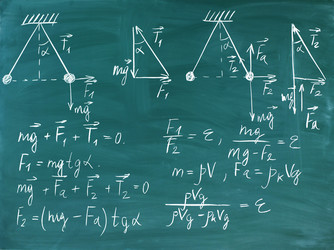 α T⃗₁
F⃗₁
mg⃗
mg⃗ α T⃗₁
F⃗₁
α F⃗a
T⃗₂
F⃗₂
mg⃗
α
T⃗₂
F⃗₂
mg⃗ F⃗a
mg⃗ + F⃗₁ + T⃗₁ = 0.
F₁ = mg tg α.
mg⃗ + F⃗a + F⃗₂ + T⃗₂ = 0
F₂ = (mg - Fa) tg α
F₁/F₂ = ε, mg/(mg - F₂) = ε
m = ρV, Fa = ρₖVg
ρVg/(ρVg - ρₖVg) = ε